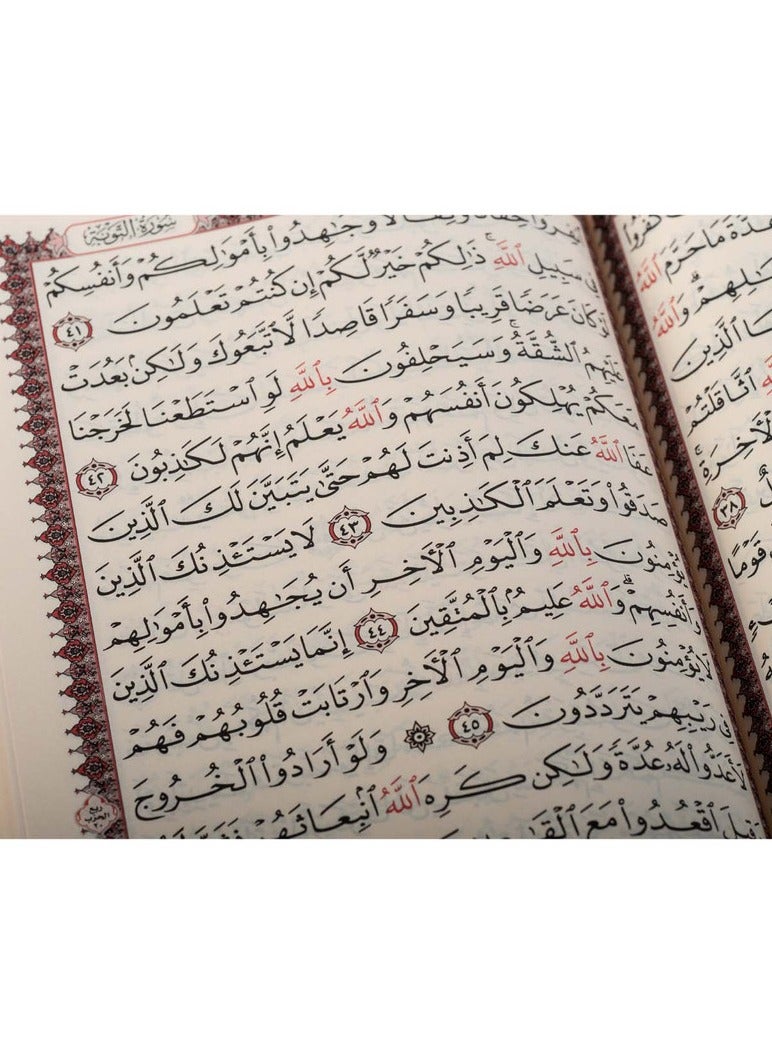 كَفَرُوا۟
مَا حَرَّمَ ٱللَّهُ
وَٱللَّهُ
ٱلَّذِينَ
ٱثَّاقَلْتُمْ
ٱلْأَخِرَةِ
٣٨
قَوْمًا
سُورَةُ التَّوْبَةِ
وَجَٰهِدُوا۟ بِأَمْوَٰلِكُمْ وَأَنفُسِكُمْ
فِى سَبِيلِ ٱللَّهِۚ ذَٰلِكُمْ خَيْرٌ لَّكُمْ إِن كُنتُمْ تَعْلَمُونَ ٤١
كَانَ عَرَضًا قَرِيبًا وَسَفَرًا قَاصِدًا لَّٱتَّبَعُوكَ وَلَٰكِنۢ بَعُدَتْ
عَلَيْهِمُ ٱلشُّقَّةُۚ وَسَيَحْلِفُونَ بِٱللَّهِ لَوِ ٱسْتَطَعْنَا لَخَرَجْنَا
مَعَكُمْ يُهْلِكُونَ أَنفُسَهُمْ وَٱللَّهُ يَعْلَمُ إِنَّهُمْ لَكَٰذِبُونَ ٤٢
عَفَا ٱللَّهُ عَنكَ لِمَ أَذِنتَ لَهُمْ حَتَّىٰ يَتَبَيَّنَ لَكَ ٱلَّذِينَ
صَدَقُوا۟ وَتَعْلَمَ ٱلْكَٰذِبِينَ ٤٣ لَا يَسْتَـْٔذِنُكَ ٱلَّذِينَ
يُؤْمِنُونَ بِٱللَّهِ وَٱلْيَوْمِ ٱلْأَخِرِ أَن يُجَٰهِدُوا۟ بِأَمْوَٰلِهِمْ
وَأَنفُسِهِمْۗ وَٱللَّهُ عَلِيمٌۢ بِٱلْمُتَّقِينَ ٤٤ إِنَّمَا يَسْتَـْٔذِنُكَ ٱلَّذِينَ
لَا يُؤْمِنُونَ بِٱللَّهِ وَٱلْيَوْمِ ٱلْأَخِرِ وَٱرْتَابَتْ قُلُوبُهُمْ فَهُمْ
فِى رَيْبِهِمْ يَتَرَدَّدُونَ ٤٥ وَلَوْ أَرَادُوا۟ ٱلْخُرُوجَ
لَأَعَدُّوا۟ لَهُۥ عُدَّةً وَلَٰكِن كَرِهَ ٱللَّهُ ٱنۢبِعَاثَهُمْ
وَقِيلَ ٱقْعُدُوا۟ مَعَ
ربع
الحزب
٢٠